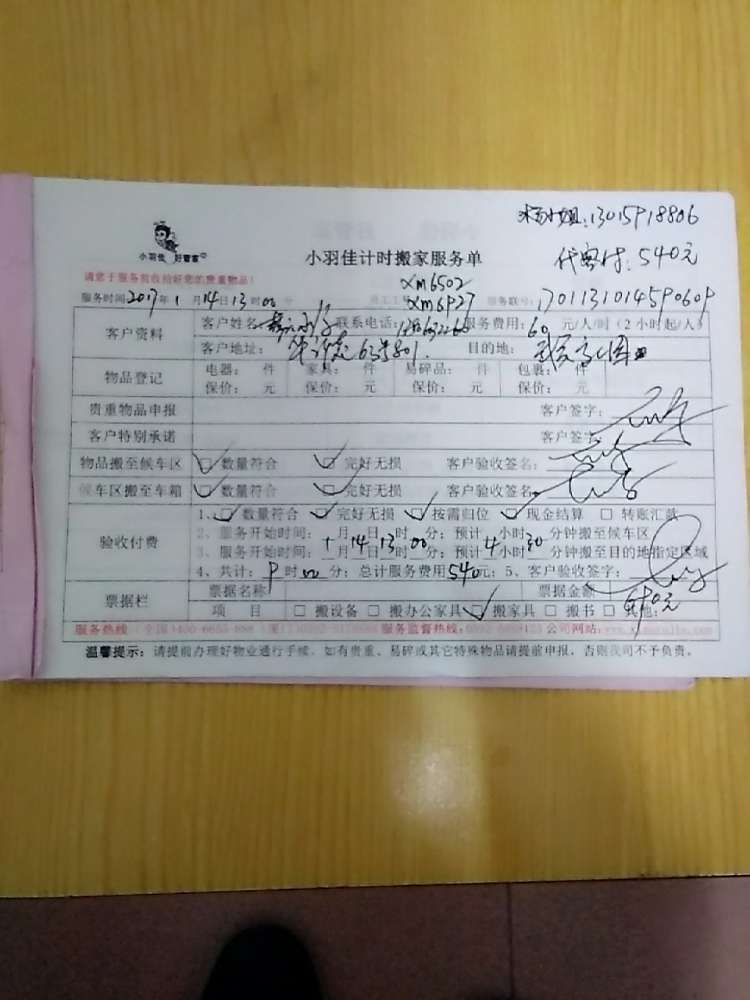 13015918806
代客付:540元
小羽佳 好管家
小羽佳计时搬家服务单
请您于服务前收拾好您的贵重物品!
xm6502
服务时间2017年1月14日13时00分 员工工号 xm6927 服务联号:
客户资料 客户姓名: 联系电话: 服务费用:60元/人/时(2小时起/人)
客户地址: 目的地:
物品登记 电器: 件 家具: 件 易碎品: 件 包裹: 件
保价: 元 保价: 元 保价: 元 保价: 元
贵重物品申报 客户签字:
客户特别承诺 客户签字:
物品搬至候车区 □数量符合 □完好无损 客户验收签名:
候车区搬至车箱 □数量符合 □完好无损 客户验收签名:
验收付费 1、□数量符合 □完好无损 □按需归位 □现金结算 □转账汇款
2、服务开始时间: 月 日 时 分;预计 小时 分钟搬至候车区
3、服务开始时间:1月14日13时00分;预计4小时30分钟搬至目的地指定区域
4、共计:9时00分;总计服务费用540元;5、客户验收签字:
票据栏 票据名称 票据金额
540元
项 目 □搬设备 □搬办公家具 □搬家具 □搬书 □其他:
服务热线 服务监督热线: 公司网站:
温馨提示:请提前办理好物业通行手续,如有贵重、易碎或其它特殊物品请提前申报,否则我司不予负责。